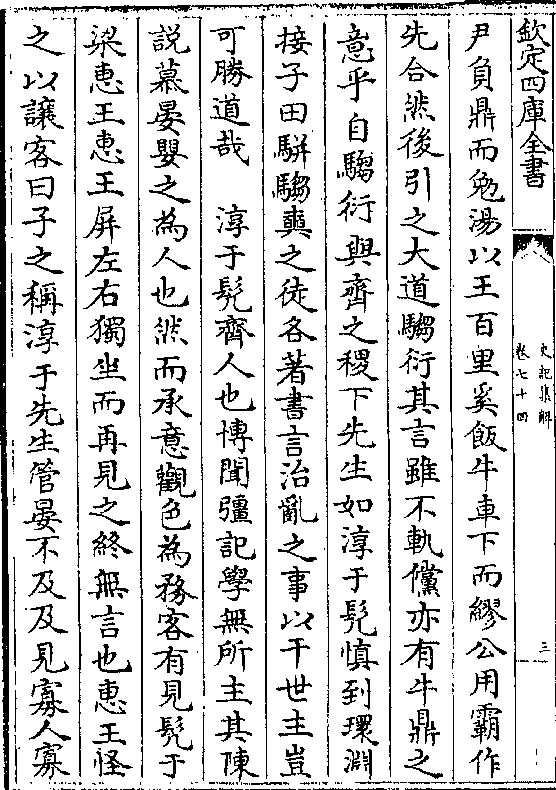 欽定四庫全書
史記集解
卷七十四
三
尹負鼎而勉湯以王百里奚飯牛車下而繆公用霸作
先合然後引之大道騶衍其言雖不軌儻亦有牛鼎之
意乎自騶衍與齊之稷下先生如淳于髡慎到環淵
接子田駢騶奭之徒各著書言治亂之事以干世主豈
可勝道哉　淳于髡齊人也博聞彊記學無所主其陳
說慕晏嬰之為人也然而承意觀色為務客有見髡于
梁惠王惠王屏左右獨坐而再見之終無言也惠王怪
之以讓客曰子之稱淳于先生管晏不及及見寡人寡